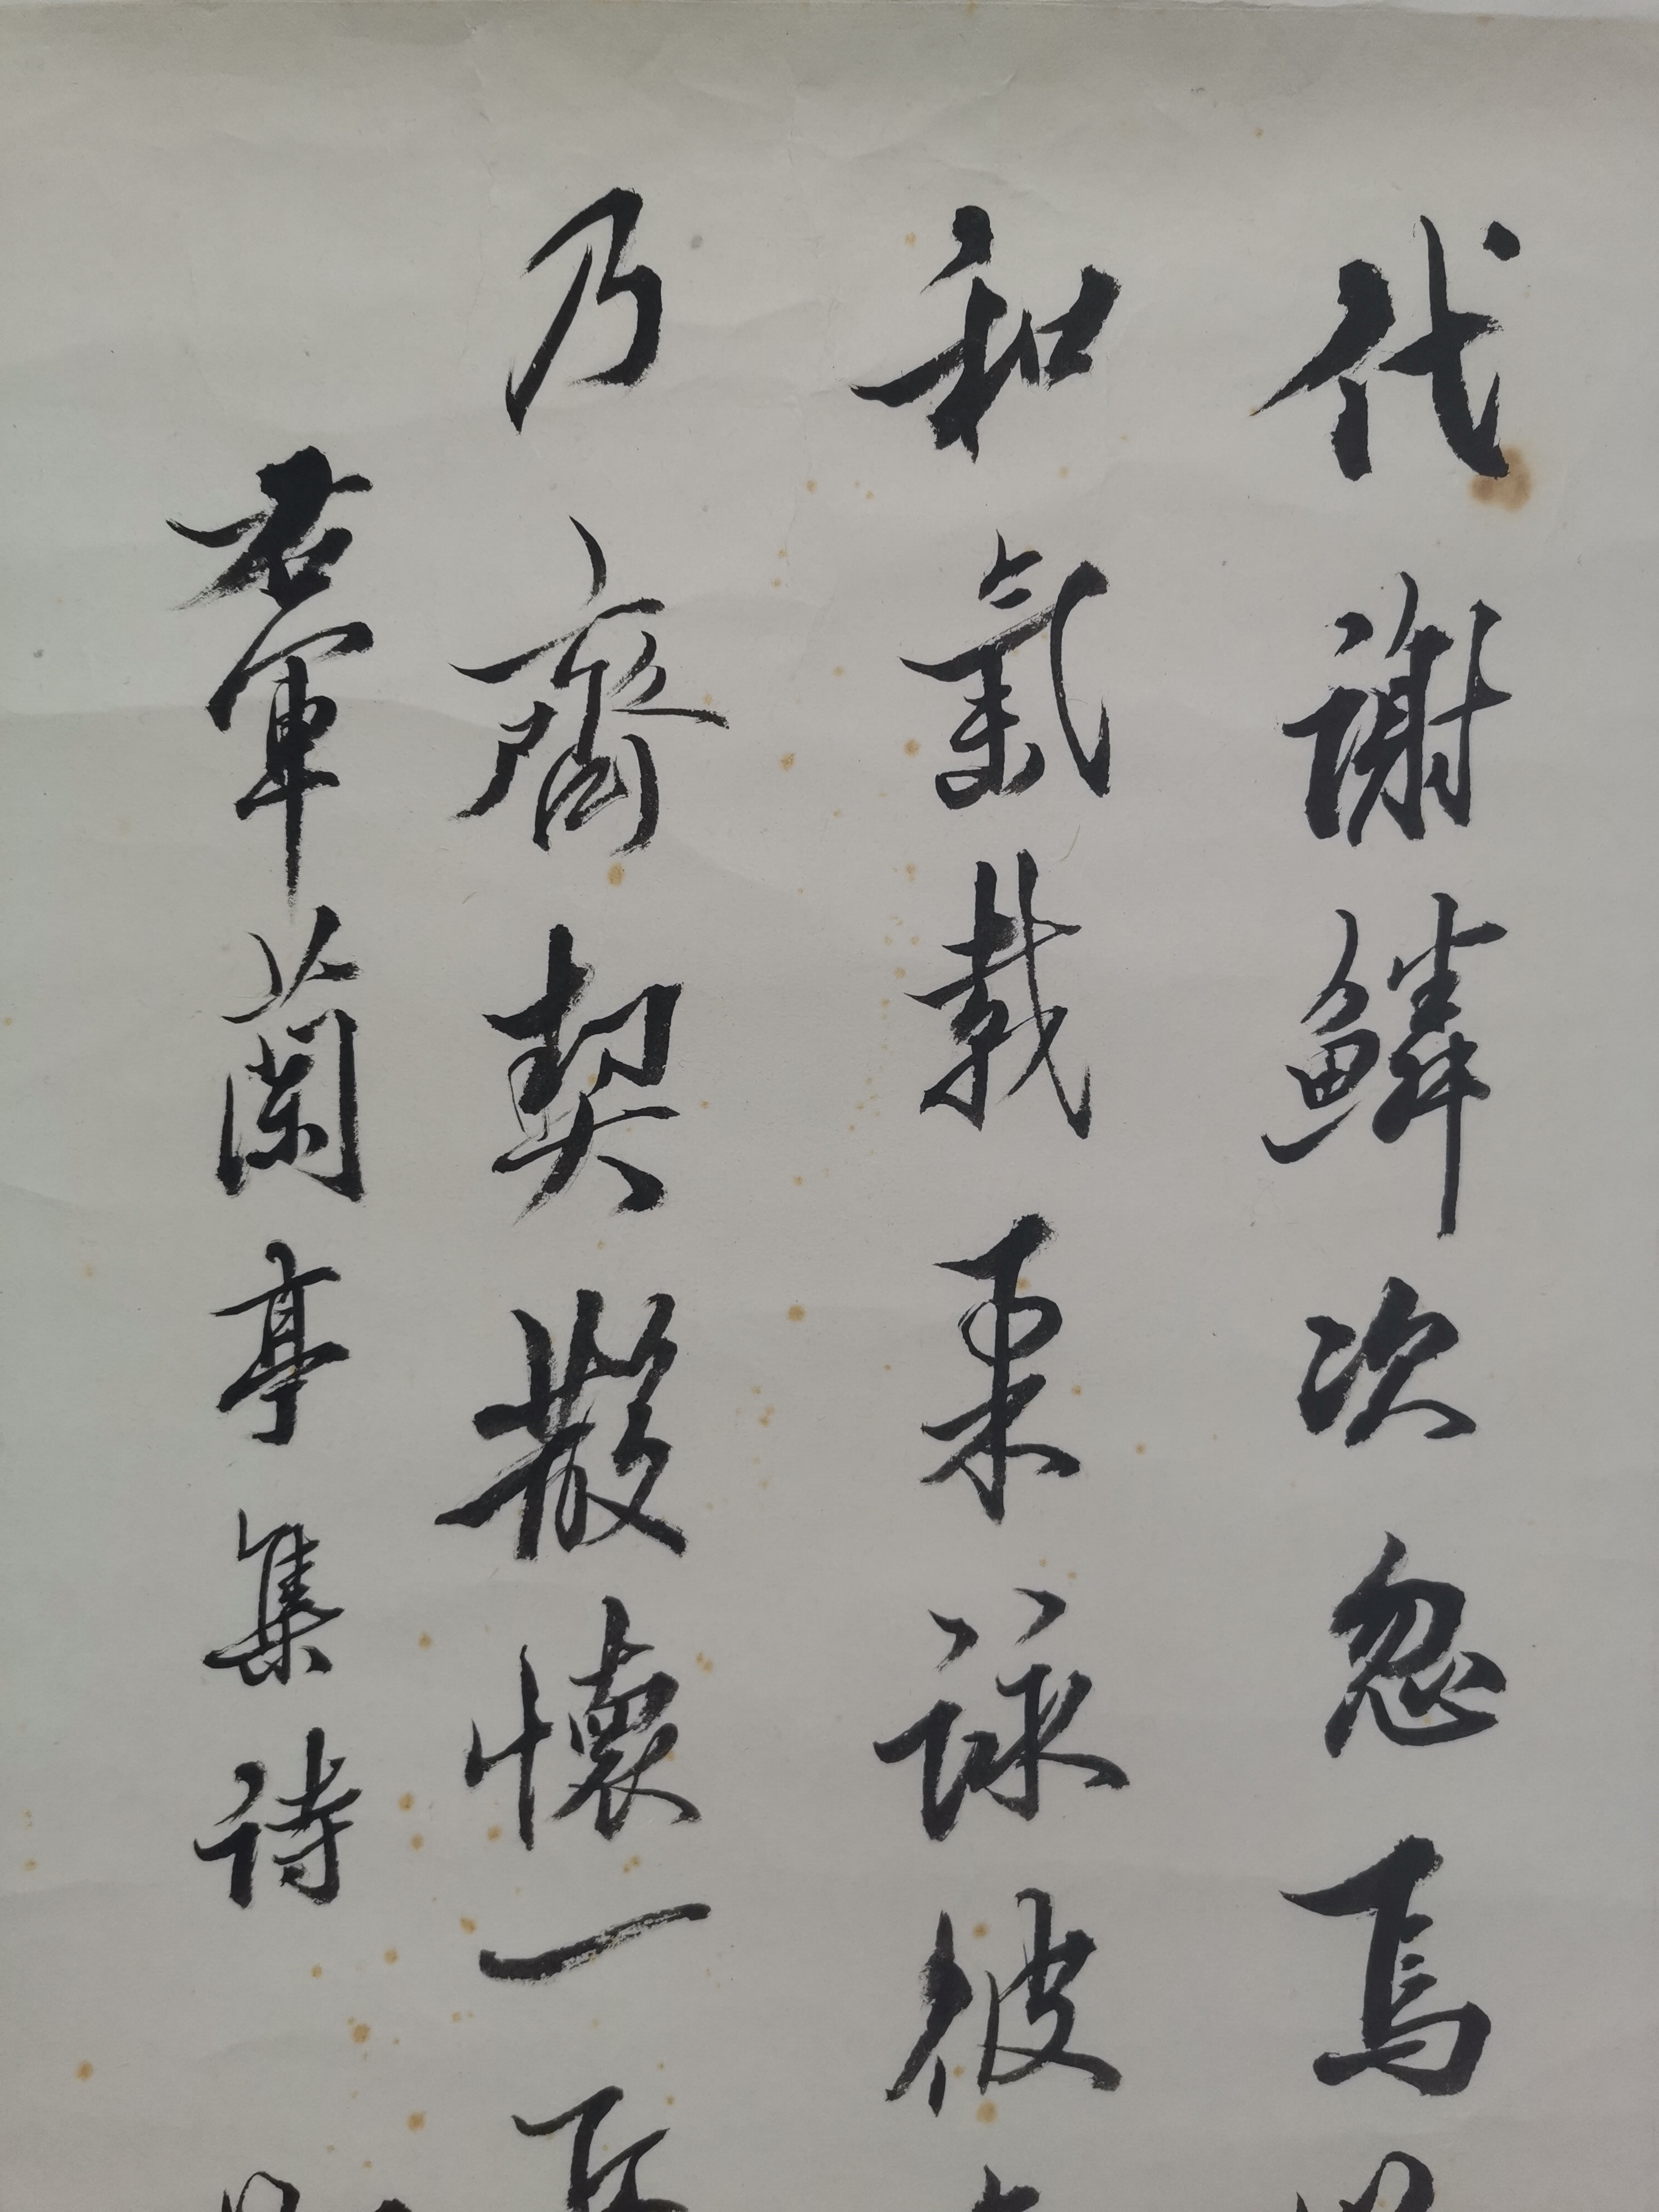 代謝鱗次忽焉
和氣載柔詠彼
乃齊契散懷一丘
右軍蘭亭集詩